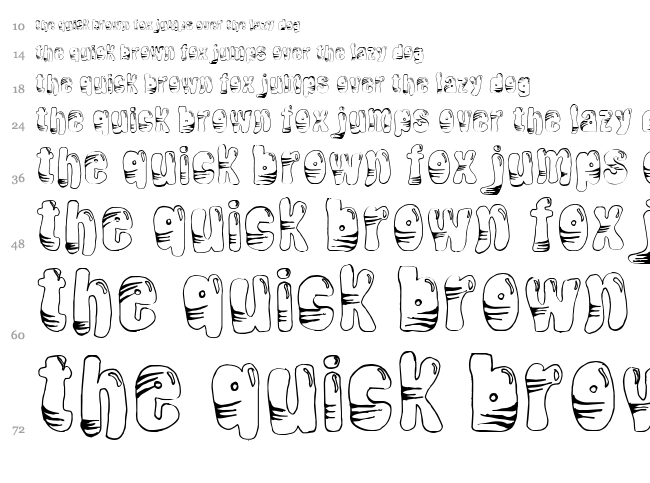 10 the quick brown fox jumps over the lazy dog
14 the quick brown fox jumps over the lazy dog
18 the quick brown fox jumps over the lazy dog
24 the quick brown fox jumps over the lazy
36 the quick brown fox jumps
48 the quick brown fox
60 the quick brown
72 the quick bro